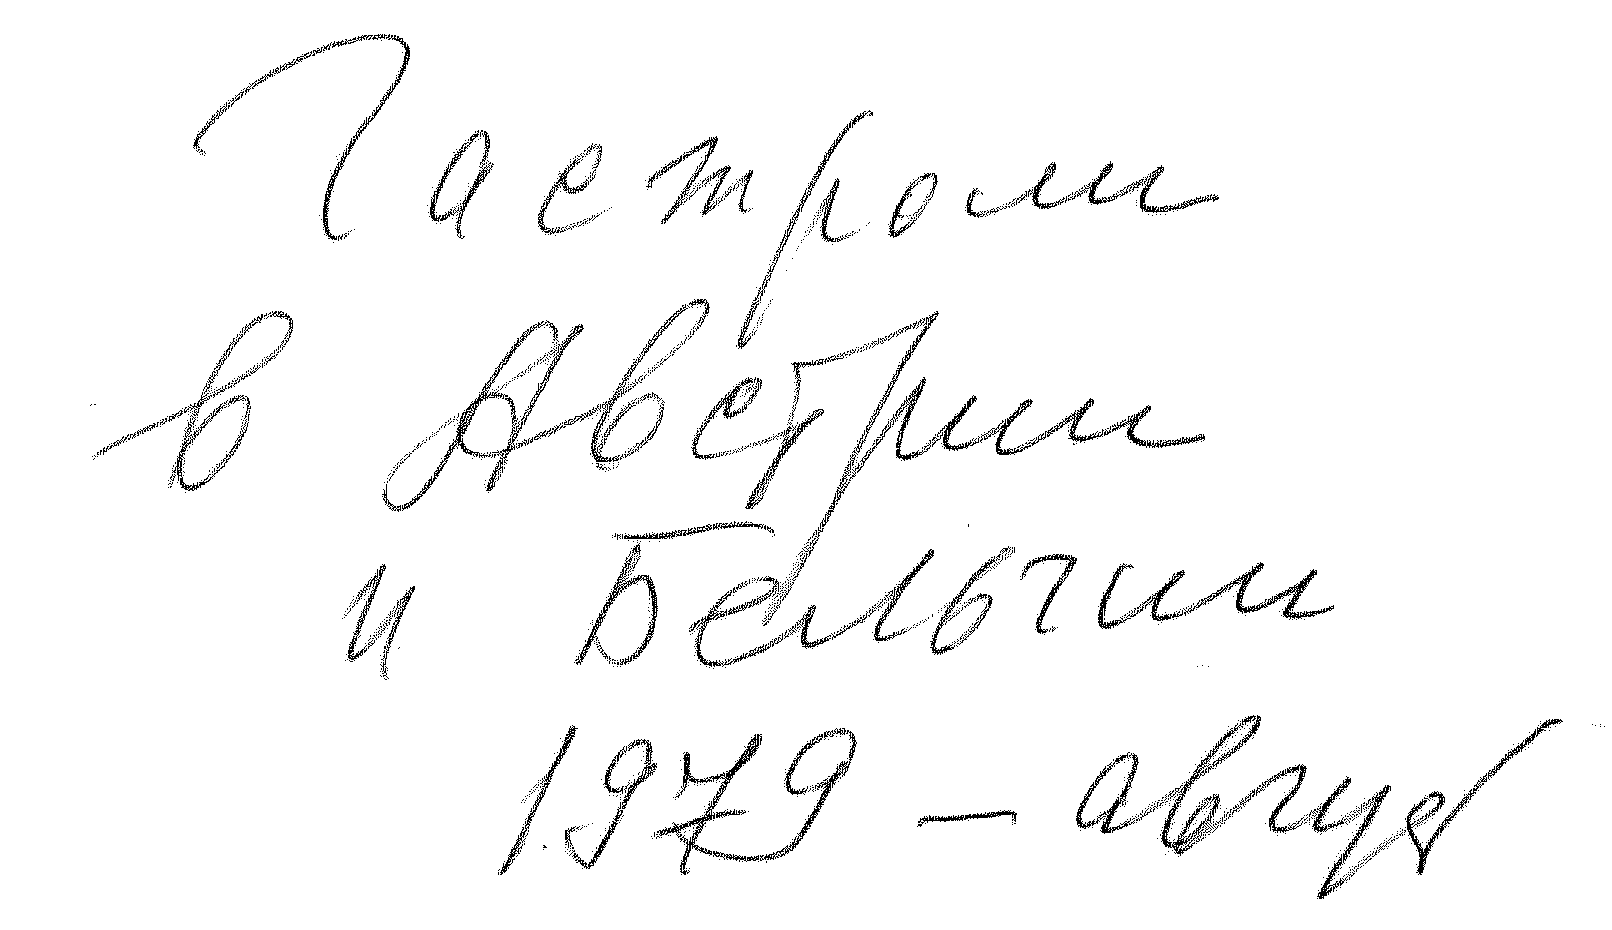 Гастроли
в Австрии
и Бельгии
1979 – август